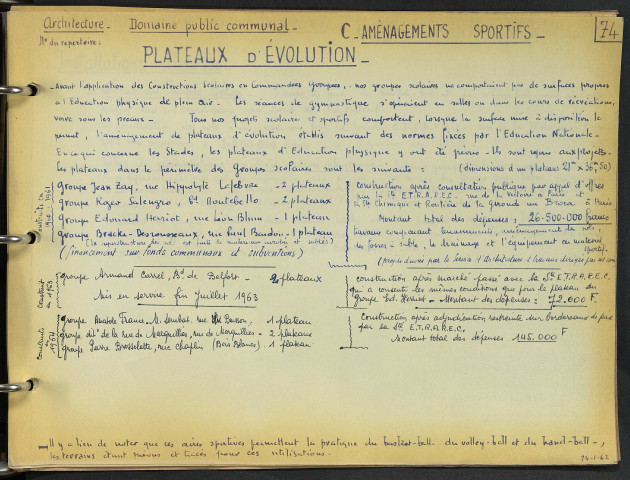 Architecture - Domaine public communal - C - AMÉNAGEMENTS SPORTIFS - 74
N° du repertoire:
PLATEAUX D'ÉVOLUTION -
- Avant l'application des Constructions Scolaires en Commandes Groupées, nos groupes scolaires ne comportaient pas de surfaces propres
à l'Education physique de plein air - Les séances de gymnastique s'opéraient en salles ou dans les cours de récréations,
voire sous les préaux - Tous nos projets scolaires et sportifs comportent, lorsque la surface mise à disposition le
permet, l'aménagement de plateaux d'évolution établis suivant des normes fixées par l'Education Nationale -
En ce qui concerne les Stades, les plateaux d'Education physique y ont été prévus - Ils sont repris aux projets -
Les plateaux dans le périmètre des Groupes scolaires sont les suivants : (dimensions d'un plateau: 21m x 36m50)
construits en 1960-1961
groupe Jean Zay, rue Hippolyte Lefebvre - 2 plateaux
groupe Roger Salengro, Bd Montebello - 2 plateaux
groupe Edouard Herriot, rue Léon Blum - 1 plateau
groupe Bracke-Desrousseaux, rue Paul Bardou - 1 plateau
(financement sur fonds communaux et subventions)
construction après consultation publique par appel d'offres
par la Sté E.T.R.A.R.E.C. rue de la Victoire à Paris et
la Sté Chimique et Routière de la Gironde
Montant total des dépenses, 26.500.000 francs
travaux comprenant terrassements, aménagement du sol,
les fosses à sable, le drainage et l'équipement en matériel
sportif.
construit en 1963
groupe Armand Carrel, Bd de Belfort - 2 plateaux
Mis en service fin Juillet 1963
construction après marché passé avec la Sté E.T.R.A.R.E.C.
qui a consenti les mêmes conditions que pour le plateau du
groupe Ed. Herriot - Montant des dépenses : 72.000 F.
construits en 1964
groupe Anatole France, M. Sembat, rue du Buisson 1 plateau
groupe dit de la rue de Marquillies, rue de Marquillies - 2 plateaux
groupe Pierre Brossolette, rue Chaplin (Bois Blancs) 1 plateau
Construction après adjudication restreinte sur bordereaux de prix
par la Sté E.T.R.A.R.E.C.
Montant total des dépenses 145.000 F
Il y a lieu de noter que ces aires sportives permettent la pratique du basket-ball du volley-ball et du hand-ball -,
les terrains étant prévus et tracés pour ces utilisations -
74-1-62